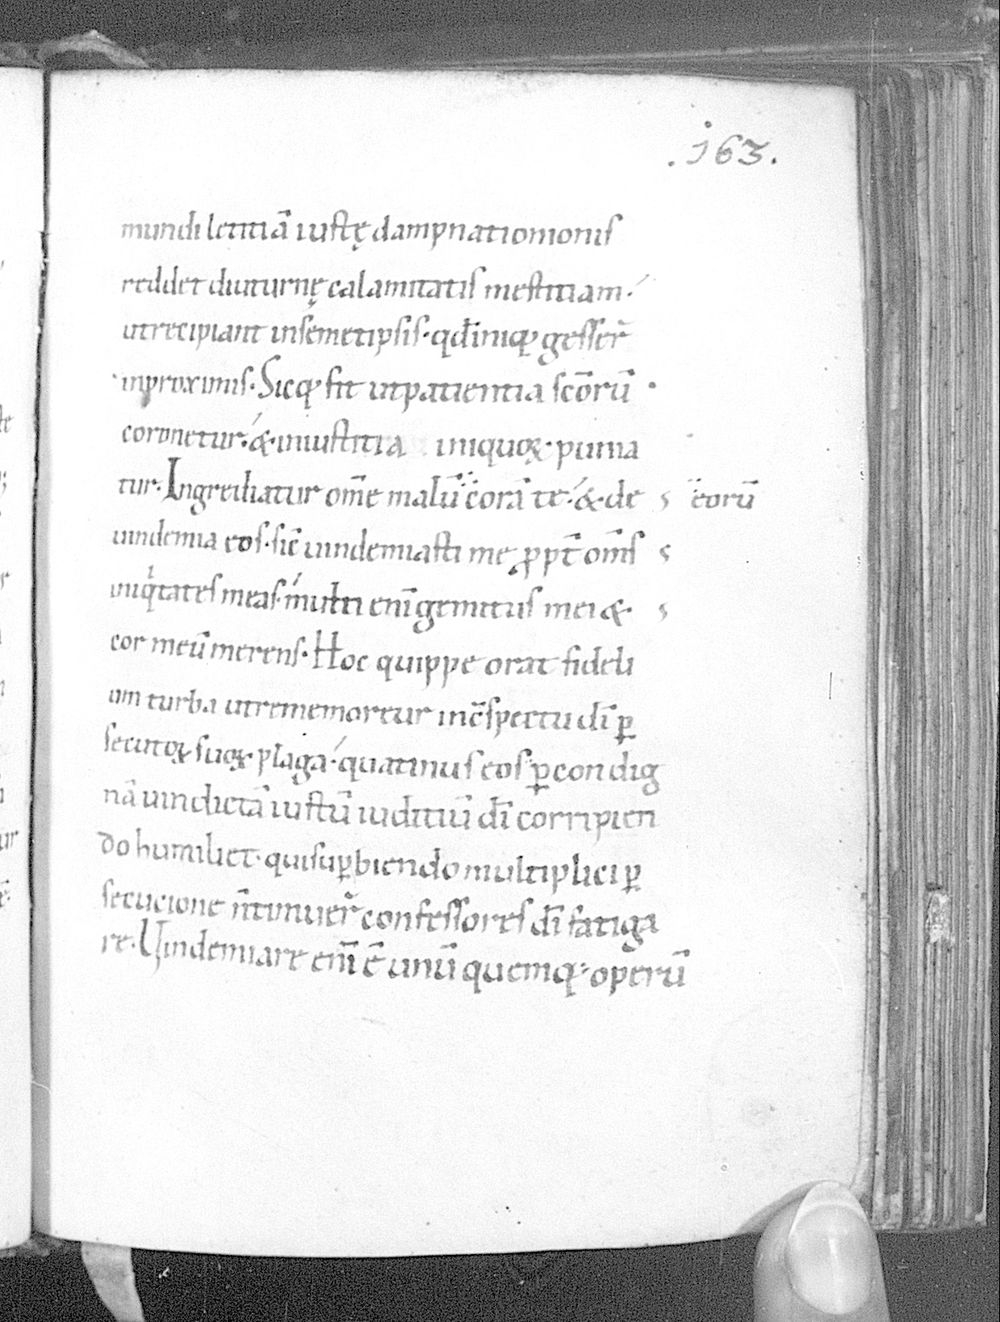 .163.
mundi letitiā iustę dampnationionis
reddet diuturnę calamitatis mestitiam.
utrecipiant insemetipsis. qd̄ iniq; gesser̄
inproximis. Sicq; fit utpatientia sc̄orū
coronetur. & iniustitia iniquoꝝ. punia
tur. Ingrediatur om̄e malū corā te. & de eorū
uindemia eos. sic̄ uindemiasti me ꝓpt̄ om̄s
iniqͥtates meas. multi eni̅ gemitus mei &
cor meū merens. Hoc quippe orat fideli
um turba utrememoretur inc̄spectu dī ꝑ
secutoꝝ suoꝝ plaga. quatinus eos ꝑcondig
nā uindictā iustū iuditiū dī corripien
do humiliet. quisuꝑbiendo multiplici ꝑ
secucione n̄timuer̄ confessores dī fatiga
re. Uindemiare eni̅ ē unū quemq; operū